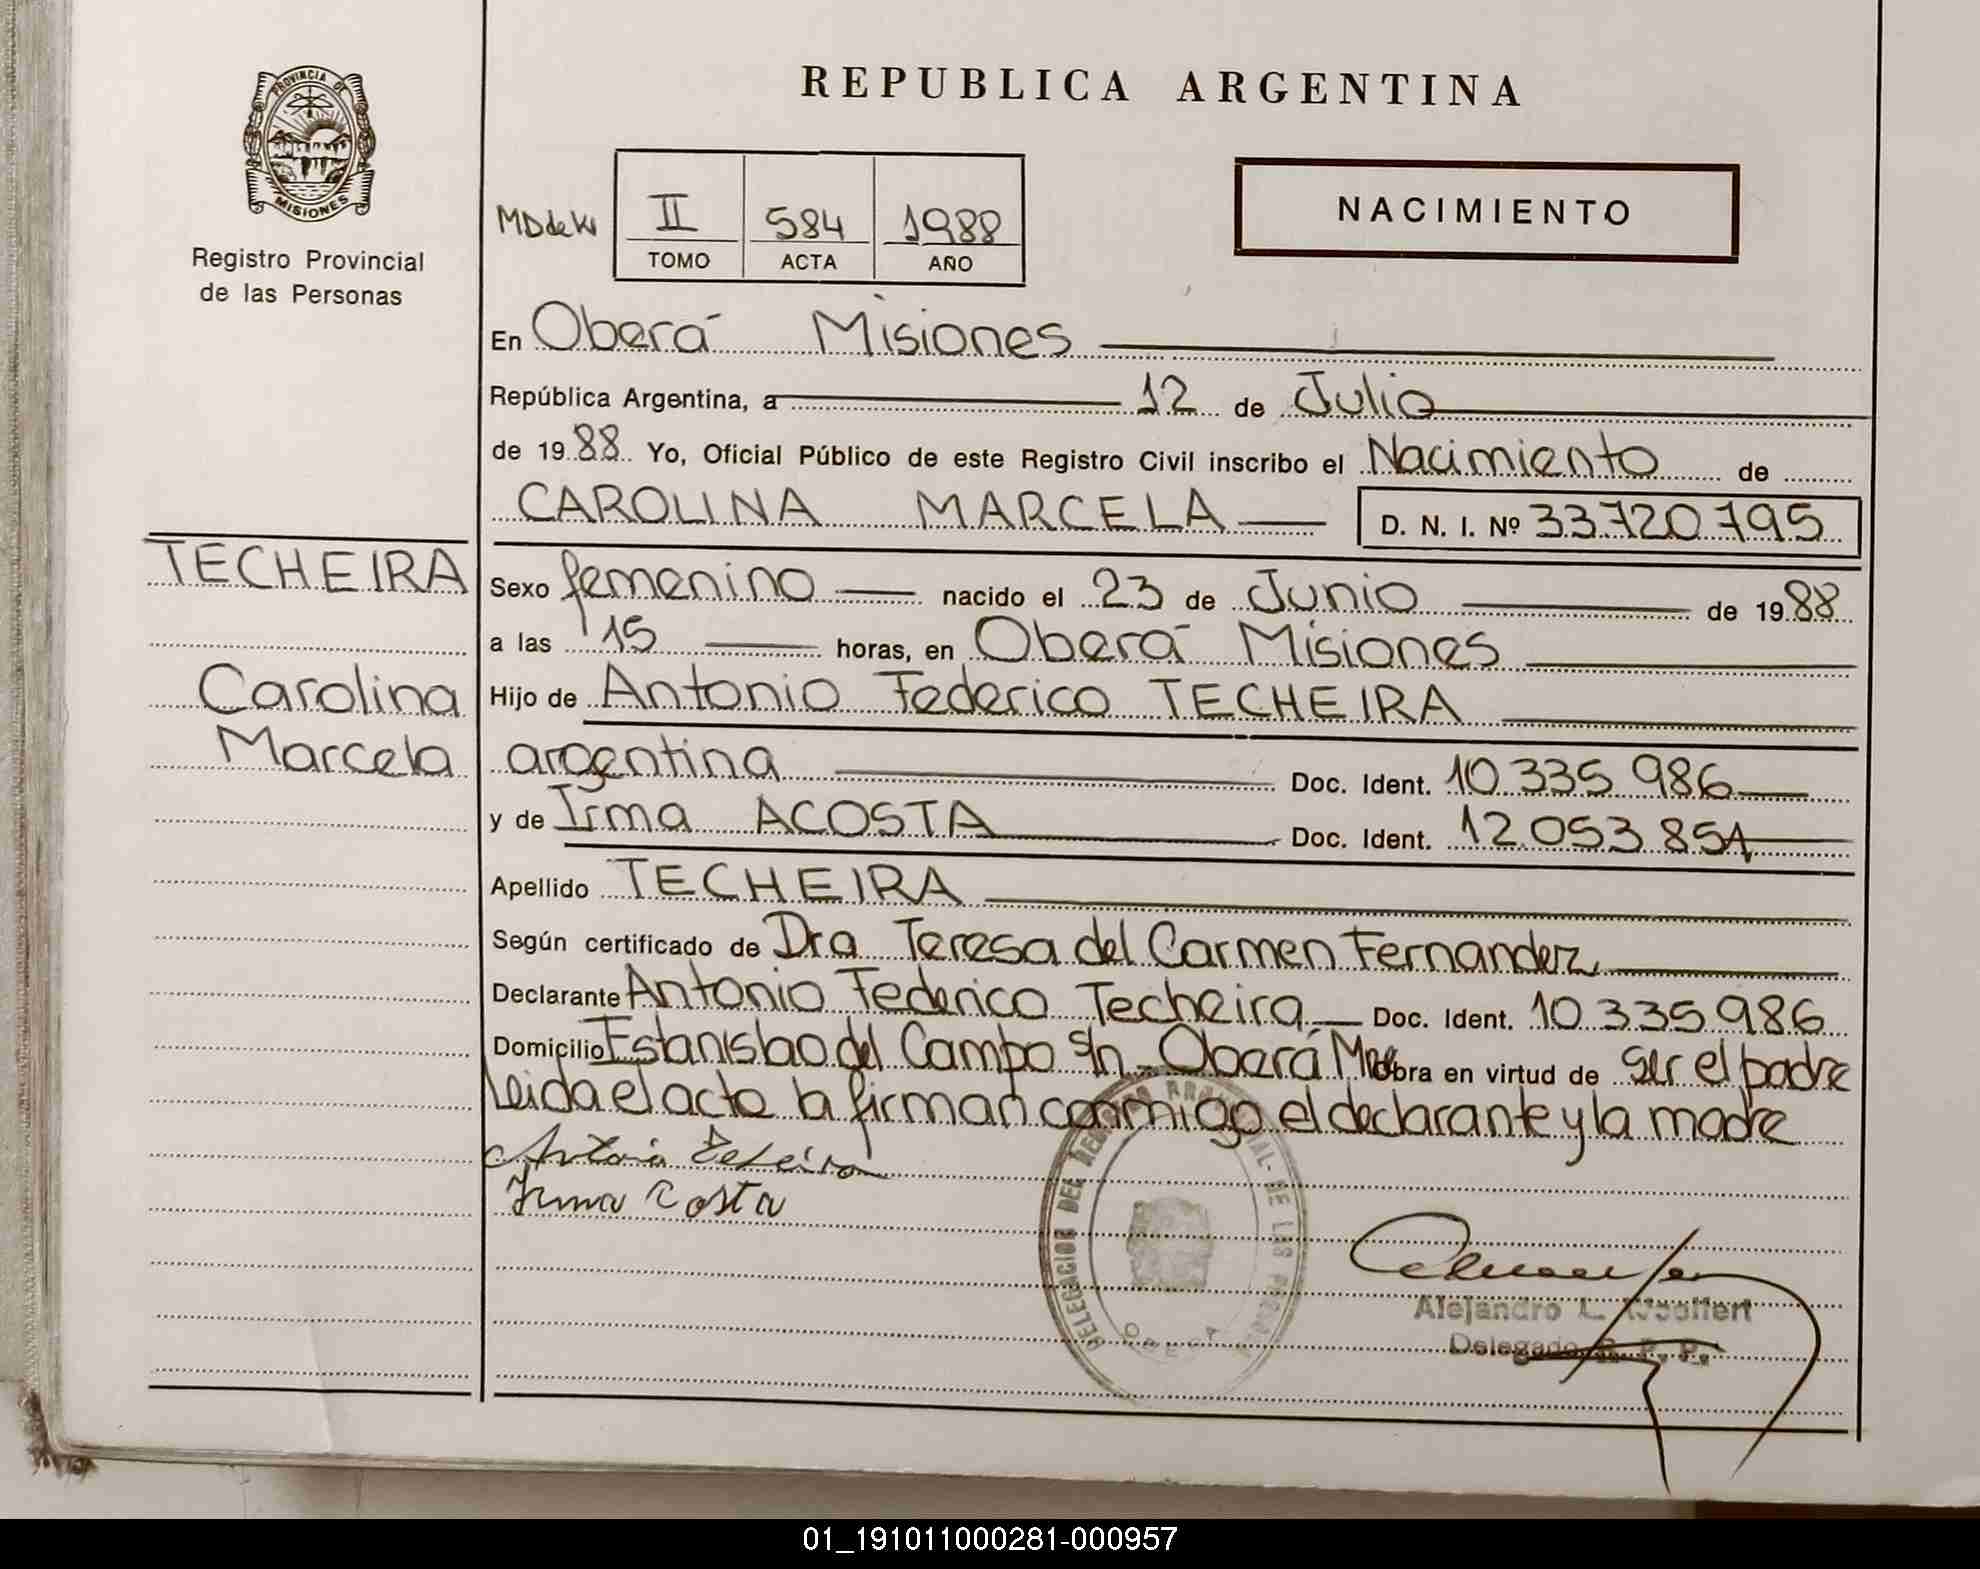 REPUBLICA ARGENTINA
PROVINCIA DE
MISIONES
Registro Provincial
de las Personas
II 584 1988
TOMO ACTA AÑO
NACIMIENTO
En Oberá Misiones
República Argentina, a 12 de Julio
de 1988 Yo, Oficial Público de este Registro Civil inscribo el Nacimiento de
CAROLINA MARCELA D. N. I. Nº 33.720.795
TECHEIRA
Carolina
Marcela
Sexo femenino nacido el 23 de Junio de 1988
a las 15 horas, en Oberá Misiones
Hijo de Antonio Federico TECHEIRA
argentina Doc. Ident. 10.335.986
y de Irma ACOSTA Doc. Ident. 12.053.851
Apellido TECHEIRA
Según certificado de Dra Teresa del Carmen Fernandez
Declarante Antonio Federico Techeira Doc. Ident. 10.335.986
Domicilio Estanislao del Campo s/n - Oberá Mnes obra en virtud de ser el padre
Leida el acta la firman conmigo el declarante y la madre
Irma Costa
DELEGACION DEL REGISTRO PROVINCIAL DE LAS PERSONAS
OBERA
Alejandro L.
Delegado R. P. P.
01_191011000281-000957